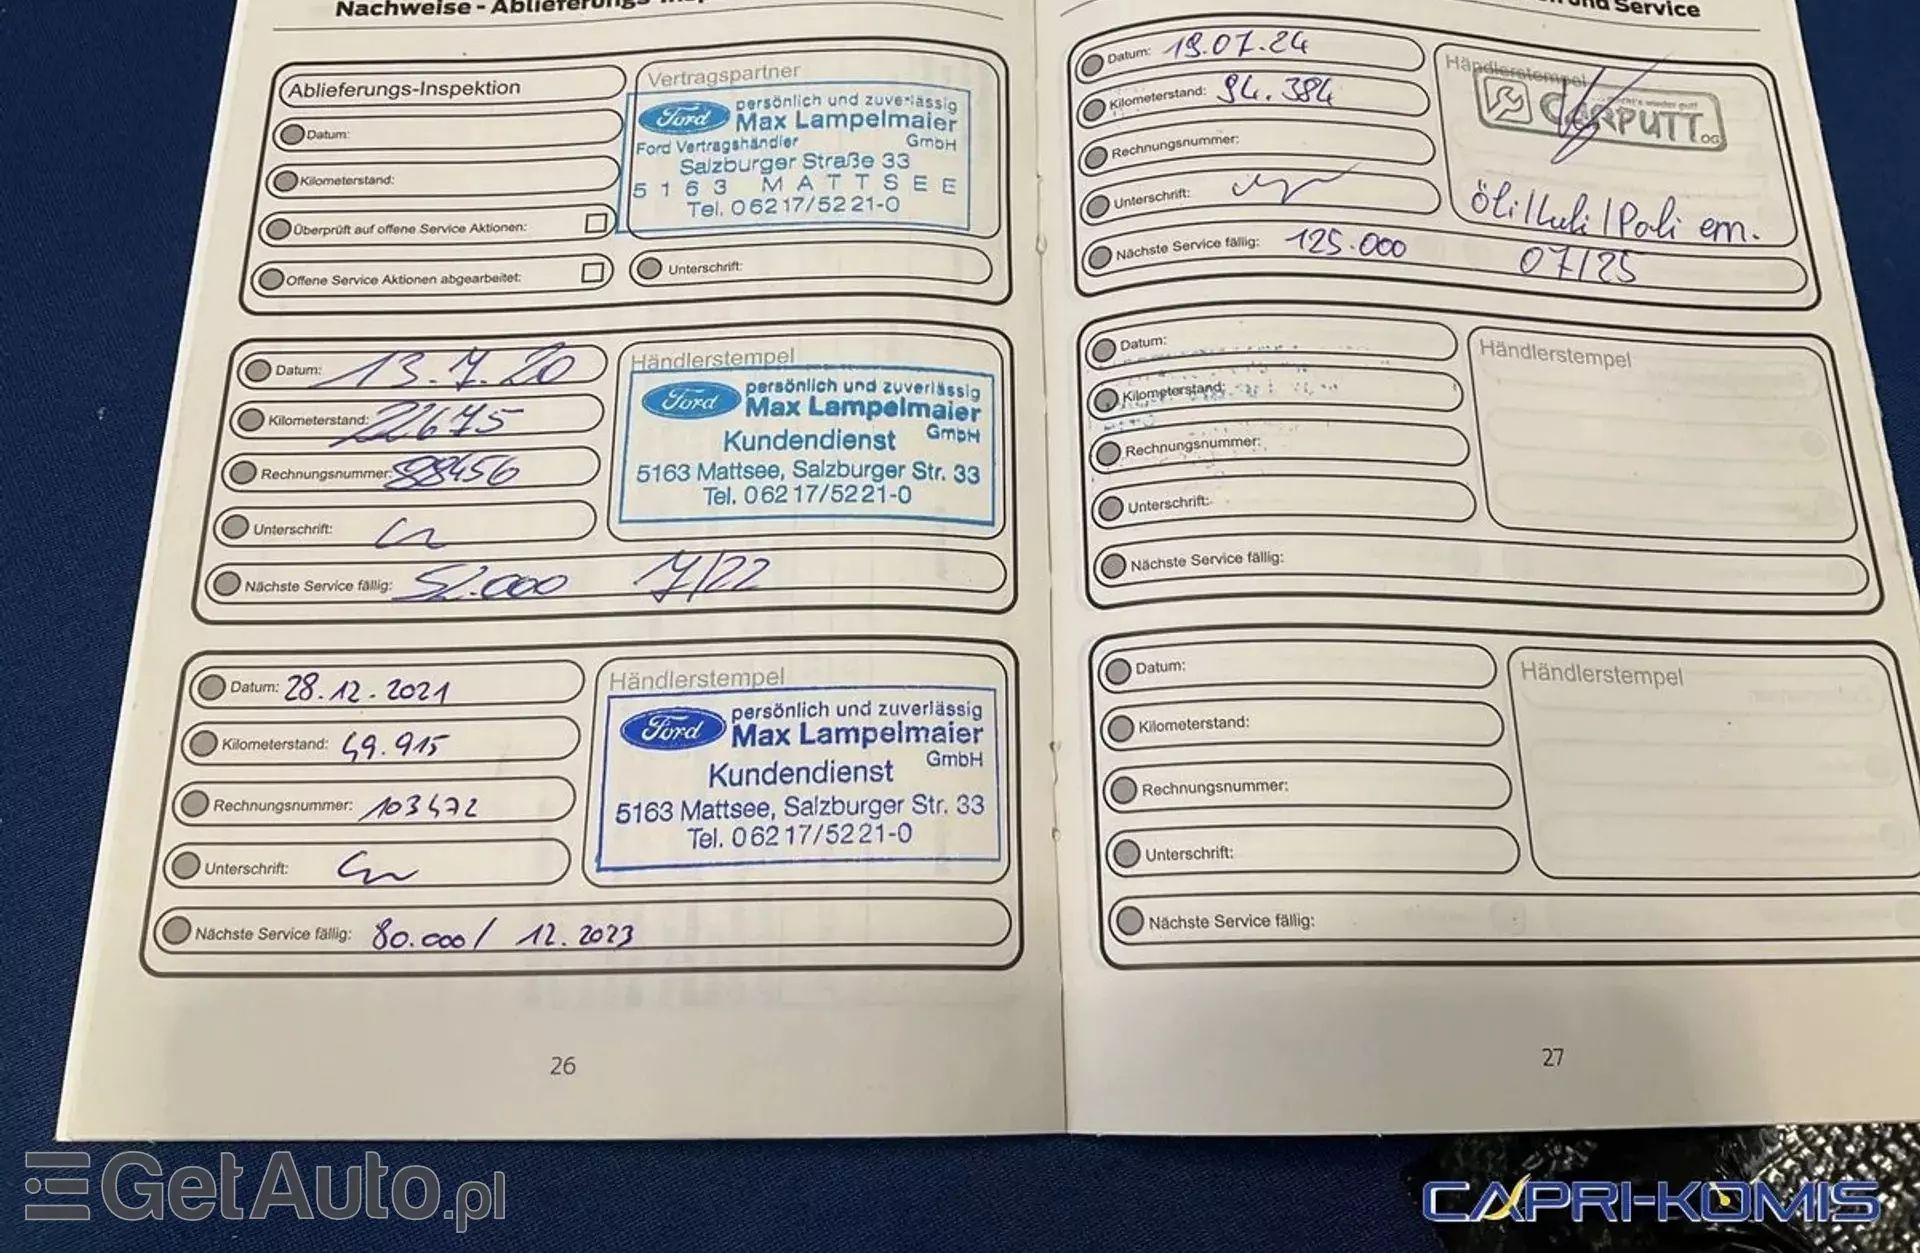 Nachweise - Ablieferungs-
Ablieferungs-Inspektion
Datum:
Kilometerstand:
Überprüft auf offene Service Aktionen:
Offene Service Aktionen abgearbeitet:
Vertragspartner
Ford
persönlich und zuverlässig
Max Lampelmaier
GmbH
Ford Vertragshändler
Salzburger Straße 33
5163 MATTSEE
Tel. 06217/5221-0
Unterschrift:
Datum: 13.7.20
Kilometerstand: 22675
Rechnungsnummer: 88456
Unterschrift:
Nächste Service fällig: 52.000 7/22
Händlerstempel
Ford
persönlich und zuverlässig
Max Lampelmaier
GmbH
Kundendienst
5163 Mattsee, Salzburger Str. 33
Tel. 06217/5221-0
Datum: 28.12.2021
Kilometerstand: 49.915
Rechnungsnummer: 103472
Unterschrift:
Nächste Service fällig: 80.000/ 12.2023
Händlerstempel
Ford
persönlich und zuverlässig
Max Lampelmaier
GmbH
Kundendienst
5163 Mattsee, Salzburger Str. 33
Tel. 06217/5221-0
26
und Service
Datum: 19.07.24
Kilometerstand: 94.384
Rechnungsnummer:
Unterschrift:
Nächste Service fällig: 125.000 07/25
Händlerstempel
wieder gut!
CARPUTT OG
Öli/Luli/Poli ern.
Datum:
Kilometerstand:
Rechnungsnummer:
Unterschrift:
Nächste Service fällig:
Händlerstempel
Datum:
Kilometerstand:
Rechnungsnummer:
Unterschrift:
Nächste Service fällig:
Händlerstempel
27
GetAuto.pl
CAPRI-KOMIS